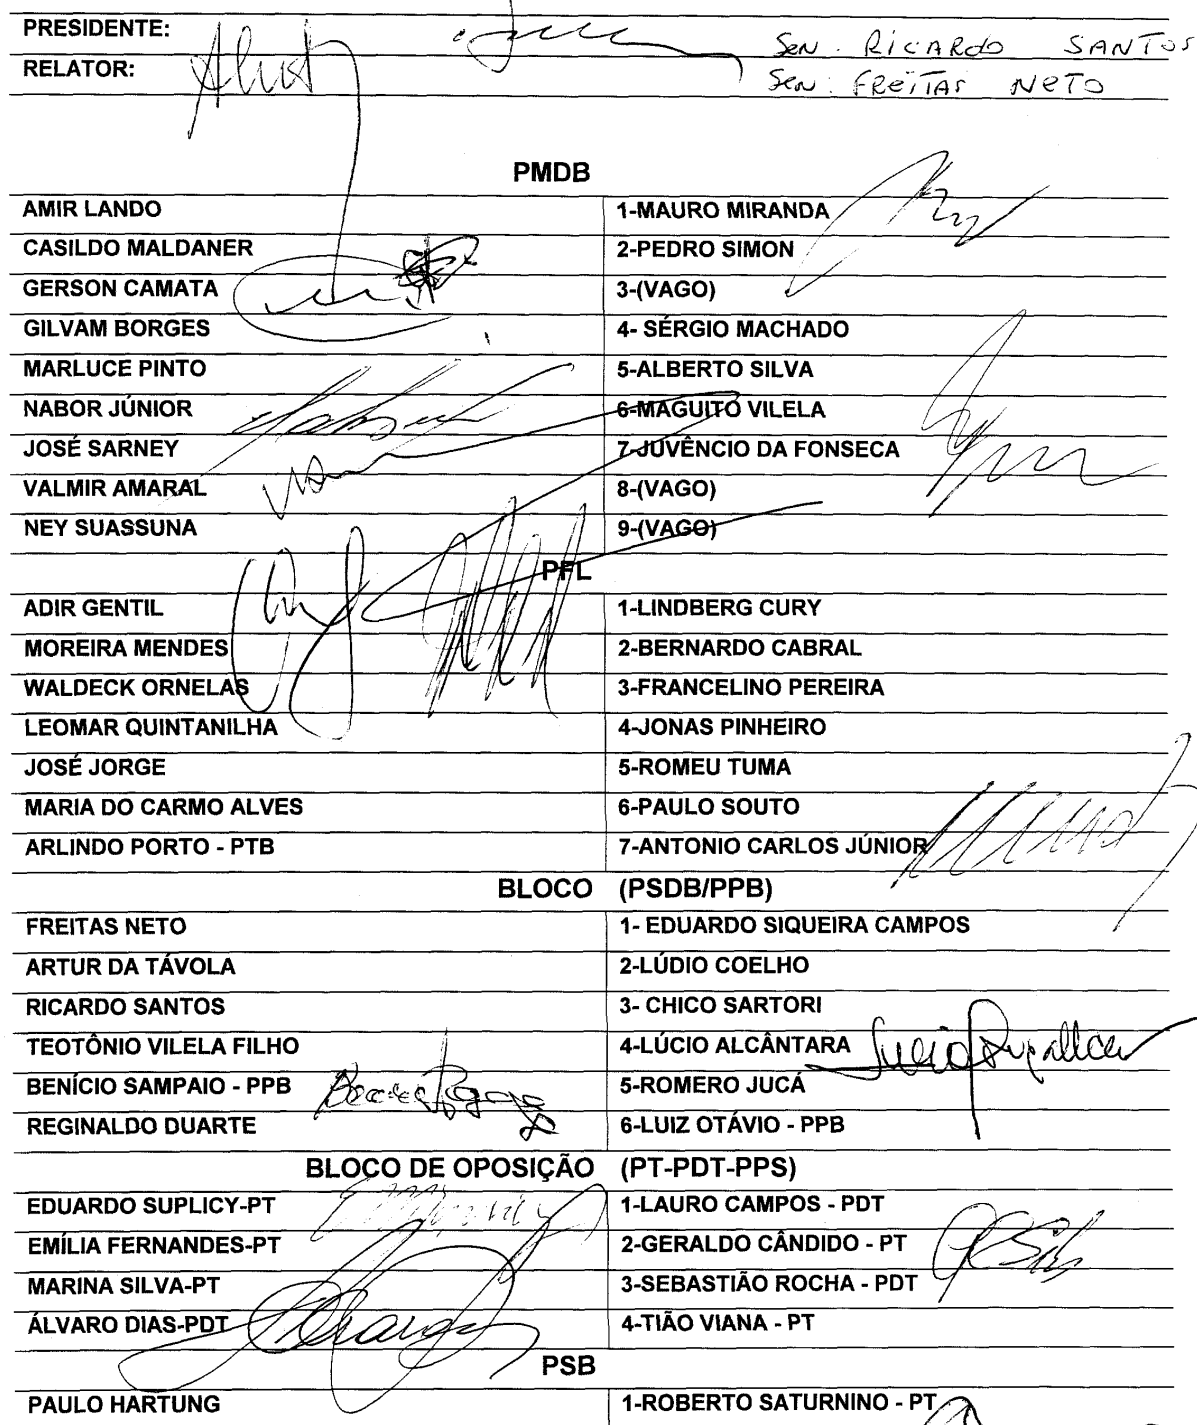 PRESIDENTE: SEN. RICARDO SANTOS
RELATOR: SEN. FREITAS NETO
PMDB
AMIR LANDO 1-MAURO MIRANDA
CASILDO MALDANER 2-PEDRO SIMON
GERSON CAMATA 3-(VAGO)
GILVAM BORGES 4- SÉRGIO MACHADO
MARLUCE PINTO 5-ALBERTO SILVA
NABOR JÚNIOR 6-MAGUITO VILELA
JOSÉ SARNEY 7-JUVÊNCIO DA FONSECA
VALMIR AMARAL 8-(VAGO)
NEY SUASSUNA 9-(VAGO)
PFL
ADIR GENTIL 1-LINDBERG CURY
MOREIRA MENDES 2-BERNARDO CABRAL
WALDECK ORNELAS 3-FRANCELINO PEREIRA
LEOMAR QUINTANILHA 4-JONAS PINHEIRO
JOSÉ JORGE 5-ROMEU TUMA
MARIA DO CARMO ALVES 6-PAULO SOUTO
ARLINDO PORTO - PTB 7-ANTONIO CARLOS JÚNIOR
BLOCO (PSDB/PPB)
FREITAS NETO 1- EDUARDO SIQUEIRA CAMPOS
ARTUR DA TÁVOLA 2-LÚDIO COELHO
RICARDO SANTOS 3- CHICO SARTORI
TEOTÔNIO VILELA FILHO 4-LÚCIO ALCÂNTARA
BENÍCIO SAMPAIO - PPB 5-ROMERO JUCÁ
REGINALDO DUARTE 6-LUIZ OTÁVIO - PPB
BLOCO DE OPOSIÇÃO (PT-PDT-PPS)
EDUARDO SUPLICY-PT 1-LAURO CAMPOS - PDT
EMÍLIA FERNANDES-PT 2-GERALDO CÂNDIDO - PT
MARINA SILVA-PT 3-SEBASTIÃO ROCHA - PDT
ÁLVARO DIAS-PDT 4-TIÃO VIANA - PT
PSB
PAULO HARTUNG 1-ROBERTO SATURNINO - PT